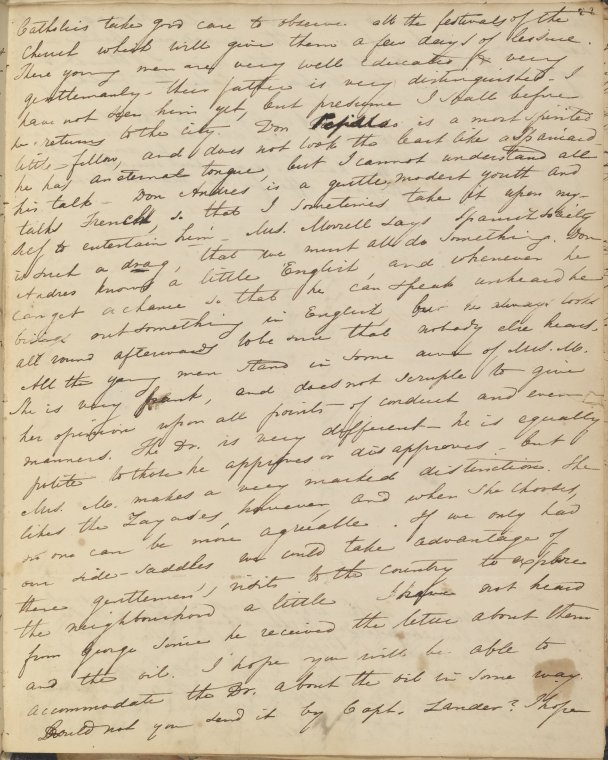 22
Catholics take good care to observe all the festivals of the
Church which will give them a few days of leisure.
These young men are very well educated & very
gentlemanly – their father is very distinguished. I
have not seen him yet, but presume I shall before
he returns to the city. Don is a most spirited
little fellow, and does not look the least like a Spaniard –
he has an eternal tongue, but I cannot understand all
his talk – Don Andres is a gentle modest youth and
talks French, so that I sometimes take it upon my-
self to entertain him – Mrs. Morrell says Spanish society
is such a drag, that we must all do something. Don
Andres knows a little English and whenever he
can get a chance so that he can speak unheard he
brings out something in English but he always looks
all round afterwards to be sure that nobody else hears.
All the young men stand in some awe of Mrs. M.
She is very frank, and does not scruple to give
her opinion upon all points of conduct and even
manners. The Dr. is very different – he is equally
polite to those he approves or disapproves – but
Mrs. M. makes a very marked distinction. She
likes the Zayases, however, and when she chooses,
no one can be more agreeable. If we only had
our side-saddles we could take advantage of
these gentlemen's visits to the country to explore
the neighbourhood a little. I have not heard
from George since he received the letter about them
and the oil. I hope you will be able to
accommodate the Dr. about the oil in some way.
Could not you send it by Capt. Lander? I hope